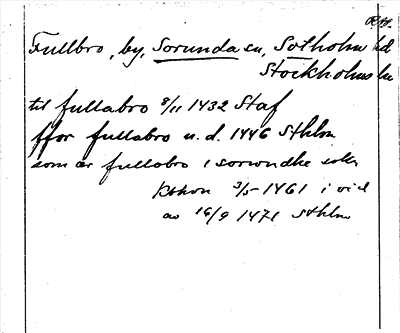 Fullbro, by, Sorunda sn, Sotholms hd
Stockholms ln
til fullabro 8/11 1432 Staf
ffor fullabro u.d. 1446 Sthlm
som ær fullobro i sorwndhe sokn
3/5 1461 i vid
av 16/9 1471 Sthlm